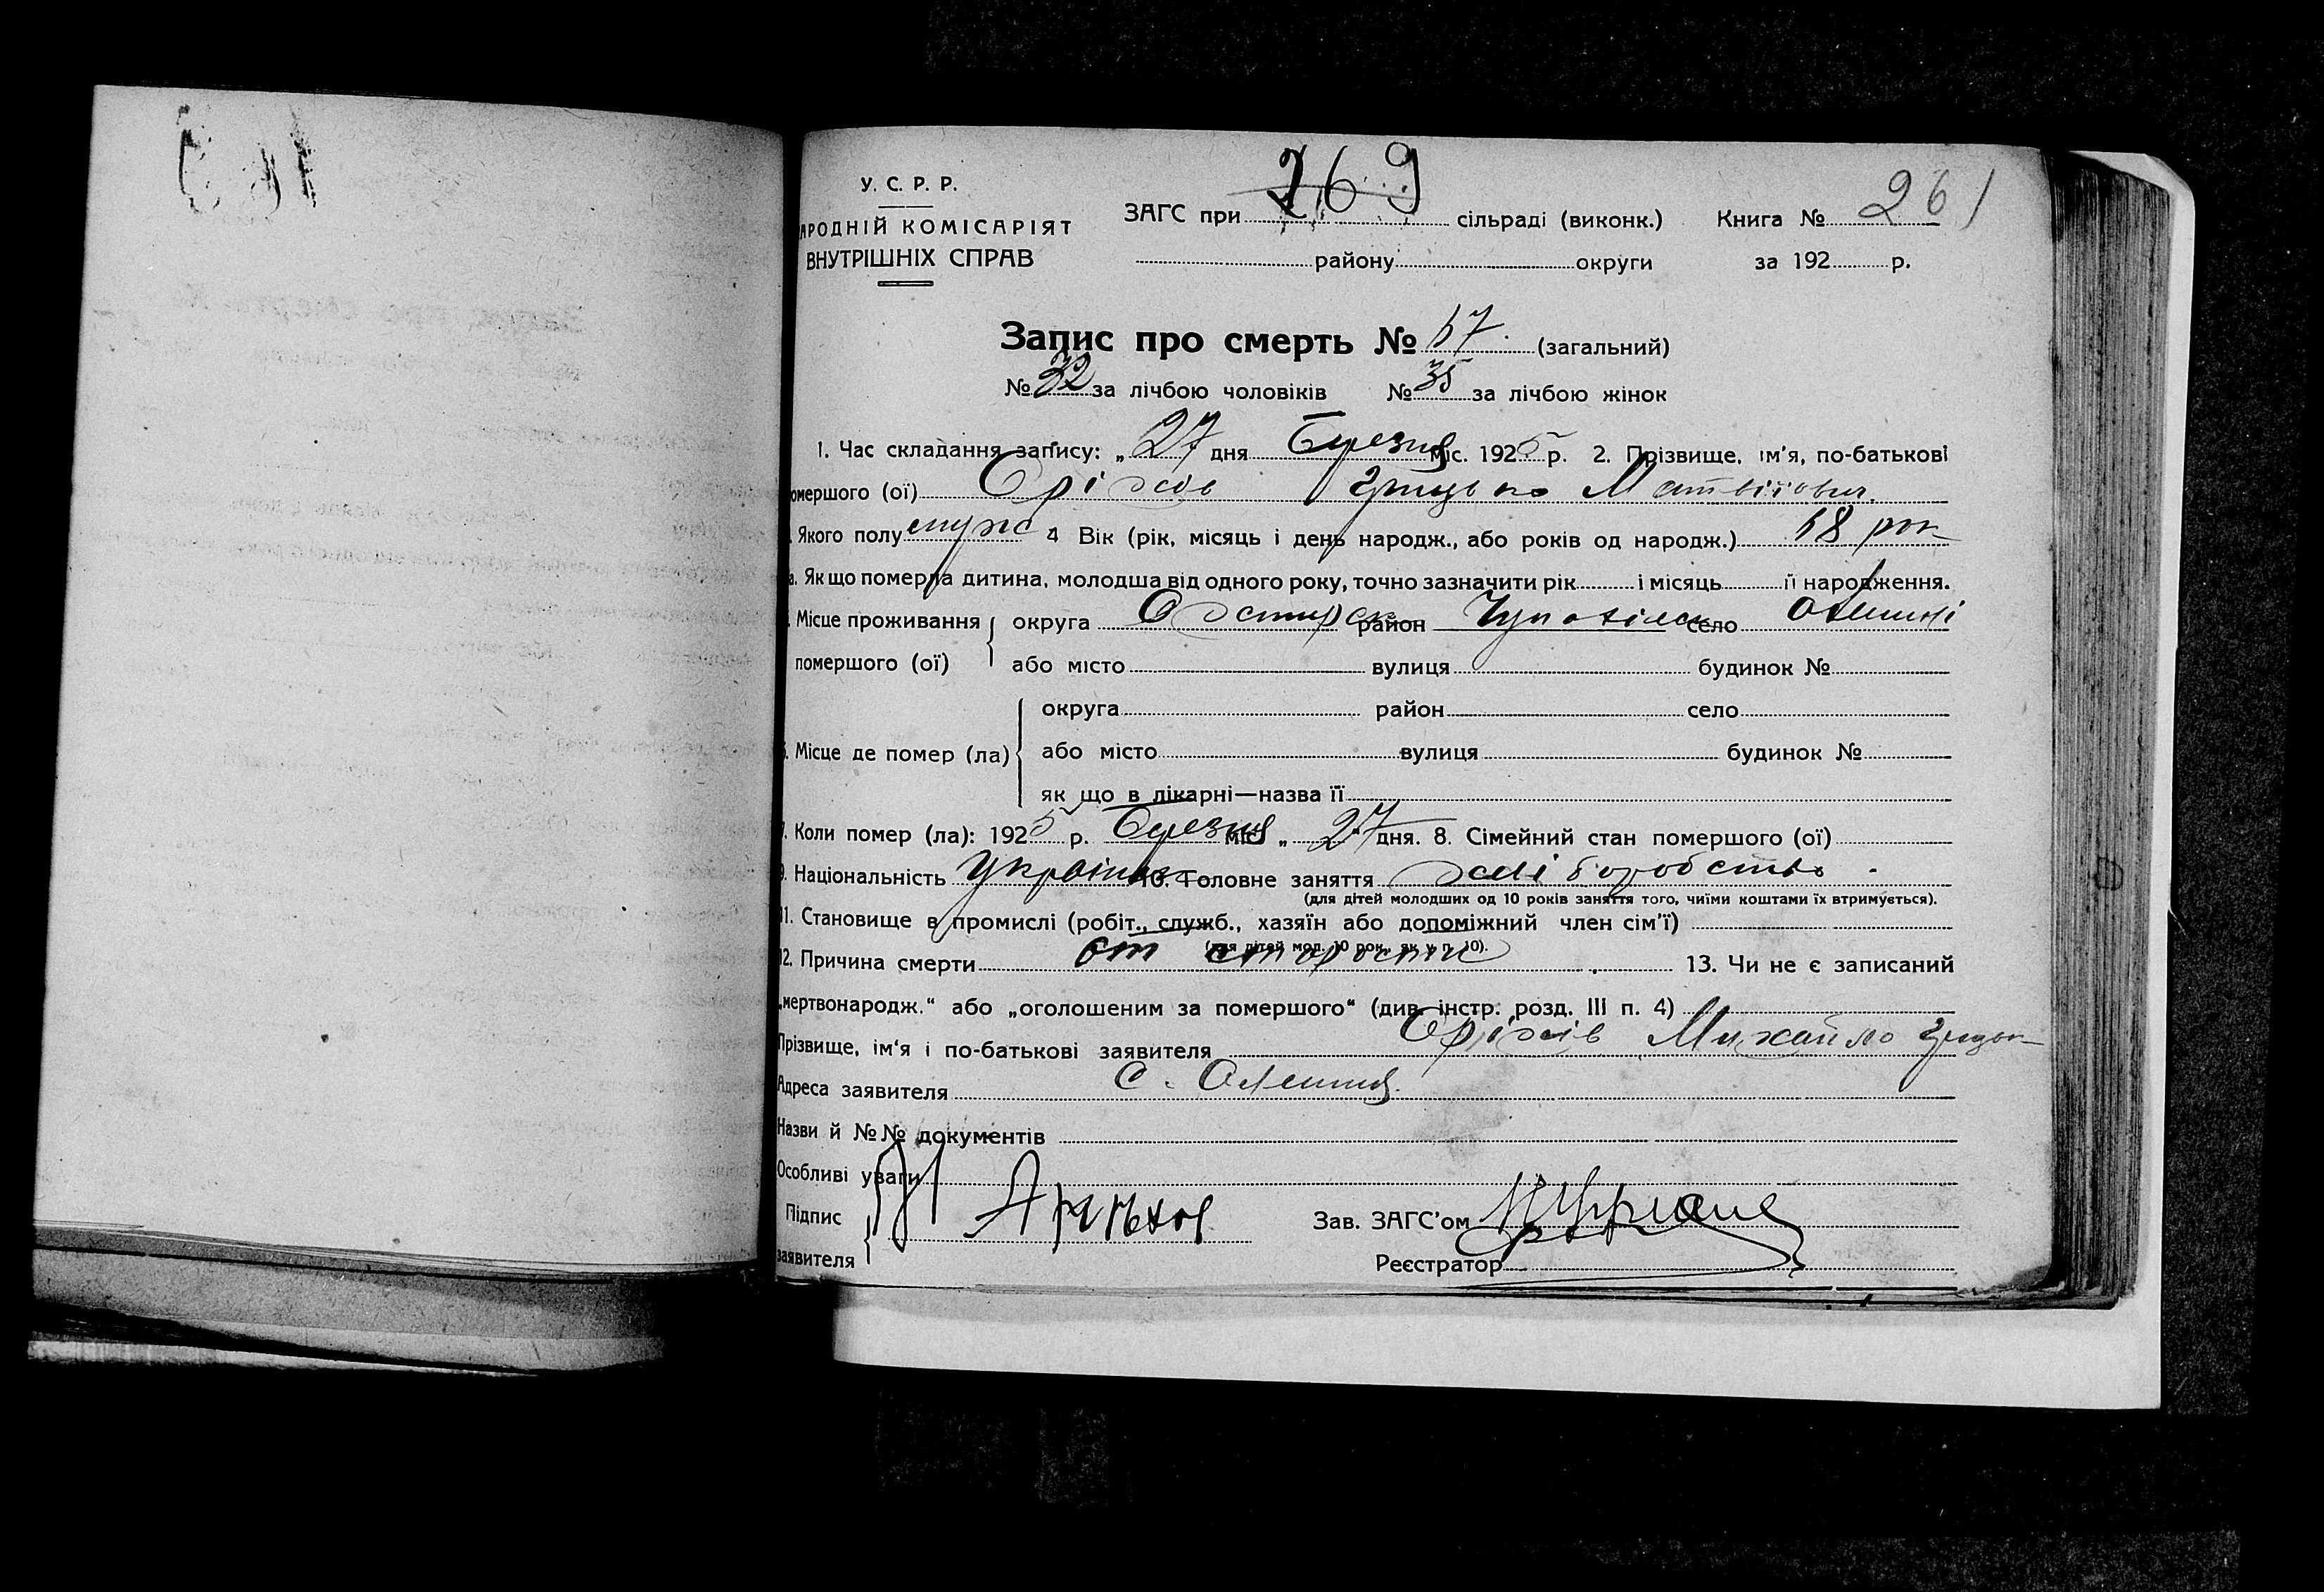 269 261
У. С. Р. Р.
АРОДНІЙ КОМІСАРІЯТ
ВНУТРІШНІХ СПРАВ
ЗАГС при сільраді (виконк.) Книга №
району округи за 192 р.
Запис про смерть № 67. (загальний)
№ 32 за лічбою чоловіків № 35 за лічбою жінок
1. Час складання запису: „27 дня Березня міс. 1925 р. 2. Прізвище, ім'я, по-батькові
омершого (ої) Оріхов Грицько Матвійович.
Якого полу муж 4 Вік (рік, місяць і день народж., або років од народж.) 68 рок
а. Як що померла дитина, молодша від одного року, точно зазначити рік і місяць її народження.
Місце проживання округа район село
помершого (ої) або місто вулиця будинок №
округа район село
Місце де помер (ла) або місто вулиця будинок №
як що в лікарні—назва її
Коли помер (ла): 1925 р. Березня міс „27 дня. 8. Сімейний стан помершого (ої)
9. Національність Українец 10. Головне заняття
(для дітей молодших од 10 років заняття того, чиїми коштами їх втримується).
11. Становище в промислі (робіт., служб., хазяїн або допоміжний член сім'ї)
(для дітей мол. 10 рок., як у п. 10).
12. Причина смерти от старости 13. Чи не є записаний
„мертвонародж.“ або „оголошеним за помершого“ (див. інстр. розд. III п. 4)
Прізвище, ім'я і по-батькові заявителя Оріхів Михайло Грицьк
Адреса заявителя с.
Назви й №№ документів
Особливі уваги
Підпис
заявителя
Зав. ЗАГС'ом
Реєстратор